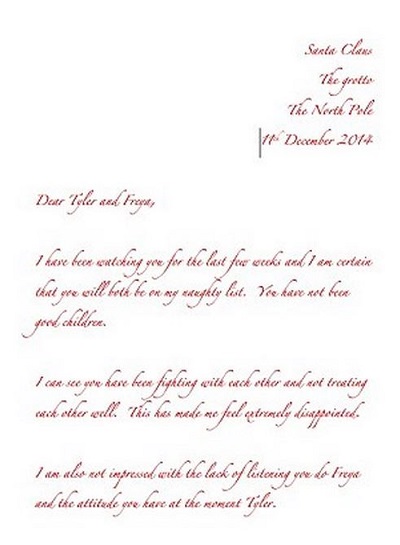 Santa Claus
The grotto
The North Pole
11th December 2014
Dear Tyler and Freya,
I have been watching you for the last few weeks and I am certain
that you will both be on my naughty list. You have not been
good children.
I can see you have been fighting with each other and not treating
each other well. This has made me feel extremely disappointed.
I am also not impressed with the lack of listening you do Freya
and the attitude you have at the moment Tyler.